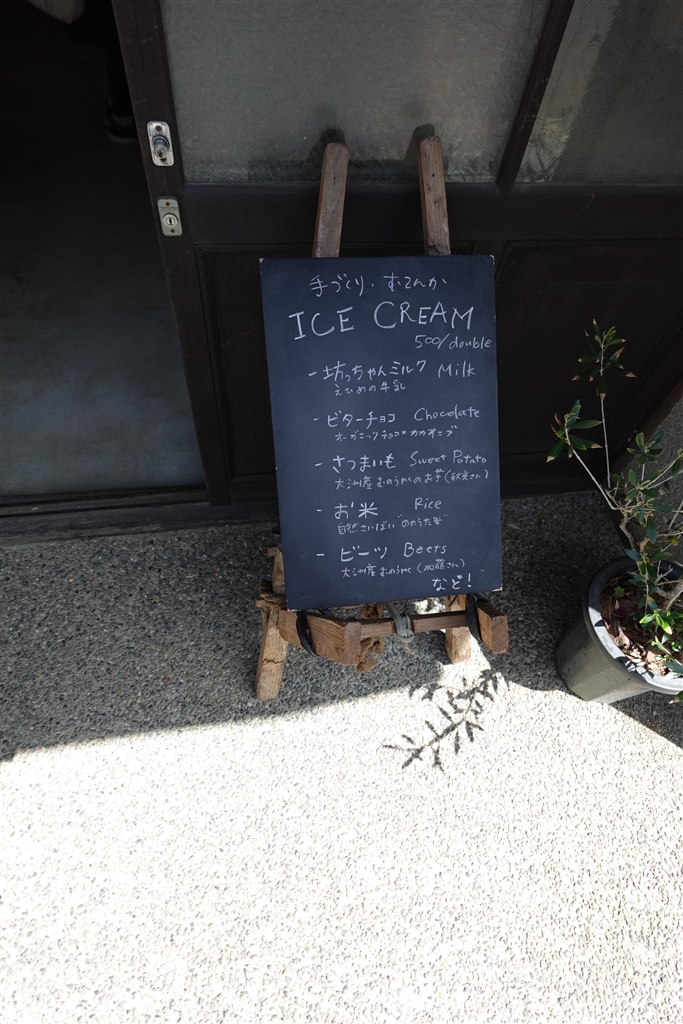 手づくり、むてんか
ICE CREAM
500/double
- 坊っちゃんミルク Milk
えひめの牛乳
- ビターチョコ Chocolate
オーガニックチョコ×カカオニブ
- さつまいも Sweet Potato
大洲産むのうやくのお芋(秋米さん)
- お米 Rice
自然さいばい"ののうた米"
- ビーツ Beets
大洲産むのうやく(加藤さん)
など!